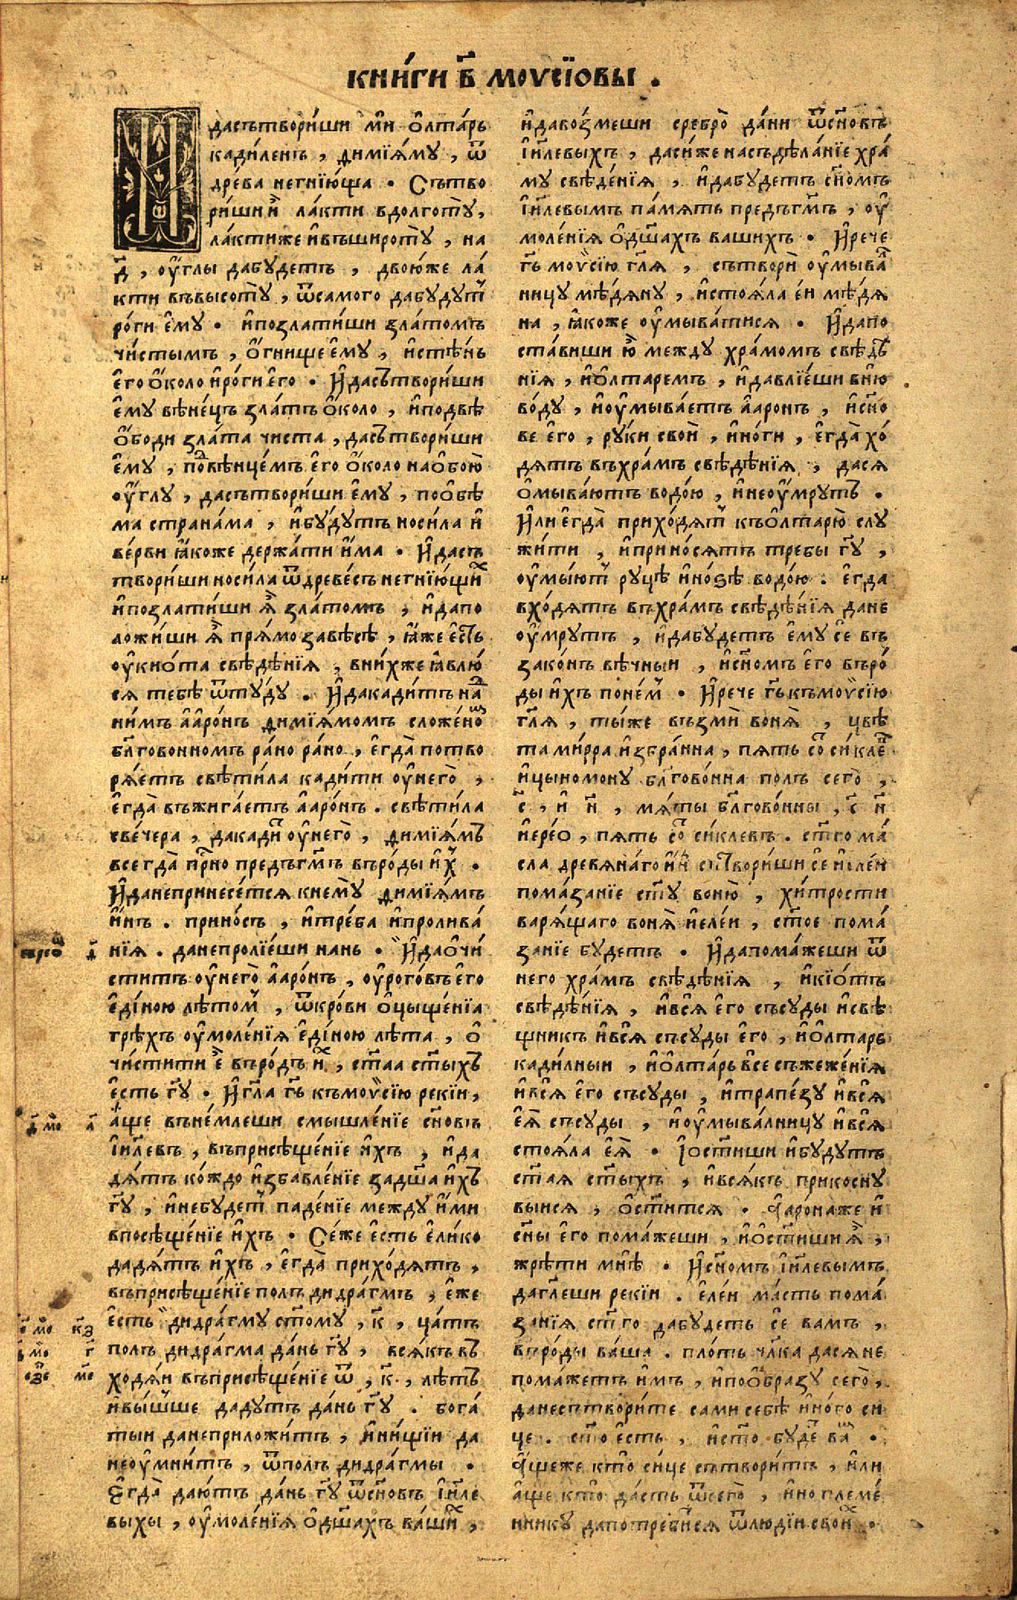 кни́ги в҃ моѵсїовы .
И
дасътвори́ши ми ѻ҆лта́рь
кади́ленъ , димїѧ́му , ѿ
дре́ва негнїю́ща . Сътво
ри́ши и҆̀ ла́кти вдолготꙋ̀ ,
ла́ктиже и҆ въширотꙋ̀ , на
д҃ , оу҆́глы дабудетъ , двою́же ла́
кти въвысотꙋ̀ , ѿсамого дабудутⷮ
ро́ги є҆мꙋ̀ . и҆позлати́ши зла́томъ
чи́стымъ , ѻ҆́гнище є҆мꙋ̀ , и҆стѣ́нь
є҆го ѻ҆́коло и҆ро́ги є҆го . И҆дасътвори́ши
є҆мꙋ вѣне́цъ зла́тъ ѻ҆́коло , и҆подвѣ
ѻ҆́боди зла́та чи́ста , дасътвори́ши
є҆мꙋ , поⷣвѣнце́мъ є҆го ѻ҆́коло наѻ҆бою̀
оу҆́глꙋ , дасътвори́ши є҆мꙋ , поѻ҆бѣ
ма страна́ма , и҆бꙋ́дутъ носи́ла и҆
ве́рви ꙗ҆́коже держа́ти и҆́ма . И҆дасъ
твори́ши носи́ла ѿдреве́съ негнїю́щиⷯ
и҆позлати́ши ѧ҆̀ зла́томъ , и҆дапо
ложи́ши ѧ҆̀ пря́мо завѣ́сѣ , ꙗ҆́же є҆́сть
оу҆ кіѡ́та свѣдѣ́нїѧ , вни́хже ꙗ҆влю́
сѧ тебѣ ѿтꙋ́дꙋ . И҆дакади́тъ наⷣ
ни́мъ а҆аро́нъ димїѧ́момъ сложе́ноⷨ
бл҃говоннымъ ра́но ра́но , є҆гда̀ потво
рѧ́етъ свѣти́ла кади́ти оу҆него̀ ,
є҆гда̀ въжига́етъ а҆аро́нъ . свѣти́ла
свечера , дакадиⷮ оу҆него̀ , димїѧ́мъ
всегда̀ прⷭ҇но предъгⷭ҇мъ въро́ды и҆́хⷯ .
И҆данепринесе́тсѧ кнемꙋ̀ димїѧ́мъ
и҆́нъ . прино́съ , и҆тре́ба и҆пролива́
нїѧ . данепролїе́ши нань . И҆даѻ҆чи́
ститъ оу҆него̀ а҆аро́нъ , оу҆рого́въ є҆го
є҆ди́ною лѣ́томⷨ , ѿкро́ви ѻ҆цыще́нїа
грѣ́хъ оу҆моле́нїѧ є҆ди́ною лѣ́та , ѻ҆
чи́стити є҆̀ въро́дъ иⷯ , ст҃аа ст҃ыхъ
є҆́сть гⷭ҇у . И҆гл҃а гⷭ҇ь къмоѵсїю реки́и ,
а҆́ще въне́млеши смышле́нїе сн҃овъ
і҆и҃левъ , въприсѣще́нїе и҆́хъ , и҆да
дѧ́тъ ко́ждо и҆збавле́нїе задш҃а и҆́хъ
гⷭ҇у , и҆небудеⷮ паде́нїе между и҆́ми
впосѣще́нїе и҆́хъ . Се́же є҆сть є҆ли́ко
дадѧ́тъ и҆́хъ , є҆гда̀ прихо́дѧтъ ,
въприсѣще́нїе полъ дидра́гмъ , є҆́же
є҆сть дидра́гмꙋ ст҃о́мꙋ , к҃ , ча́тъ
полъ дидра́гма да́нь гⷭ҇у , всѧ́къ въ
ходѧ́и въприсѣще́нїе ѿ , к҃ , лѣ́тъ
и҆вы́шше дадꙋ́тъ да́нь гⷭ҇у . бога́
тыи данеприложи́тъ , и҆ни́щїи да
неоу҆мни́тъ , ѿполъ дидра́гмы .
Є҆гда̀ даю́тъ да́нь гⷭ҇у ѿсн҃овъ і҆и҃ле
выхъ , оу҆моле́нїѧ ѻ҆дш҃а́хъ ва́шиⷯ ,
и҆даво́змеши сребро̀ да́ни ѿсн҃овъ
і҆и҃левыхъ , даси́же насъдѣ́ланїе хра́
мꙋ свѣде́нїѧ , и҆дабудетъ сн҃омъ
і҆и҃левымъ па́мѧть предъгⷭ҇мъ , оу҆
моле́нїѧ ѻ҆дш҃ахъ вашихъ . И҆рече
гⷭ҇ь моѵсїю гл҃ѧ , сътворѝ оу҆мываⷧ
ницꙋ мѣ́дѧнꙋ , и҆стоѧ́ла є҆́и мѣ́дѧ
на , ꙗ҆́коже оу҆мыва́тисѧ . И҆дапо
ста́виши ю҆̀ между хра́момъ свѣдѣ́
нїѧ , и҆ѻ҆лтаре́мъ , и҆давлїе́ши вню̀
во́дꙋ , и҆оу҆мыва́етъ а҆аронъ , и҆сн҃о
ве є҆го , рꙋ́ки своѝ , и҆но́ги , є҆гда̀ хо́
дѧтъ въхра́мъ свѣдѣ́нїѧ , дасѧ
ѻ҆мыва́ютъ водо́ю , и҆неоу҆́мрутъ .
И҆лиє҆гда̀ прихо́дѧтⷮ къѻ҆лтарю̀ слꙋ
жи́ти , и҆прино́сѧтъ требы гⷭ҇у ,
оу҆мы́ютⷮ рꙋцѣ̀ и҆но́ѕѣ водо́ю . є҆гда
вхо́дѧтъ въхра́мъ свѣдѣ́нїѧ дане
оу҆́мрꙋтъ , и҆дабꙋ́детъ є҆мꙋ се́ въ
зако́нъ вѣ́чныи , и҆сн҃омъ є҆го въро́
ды и҆́хъ поне́мⷨ . И҆рече гⷭ҇ь къмоѵсїю
гл҃ѧ , ты́же възмѝ вонѧ̀ , цвѣ
та ми́рра и҆збра́нна , пѧ́ть соⷮ си́клеⷡ
и҆цыномо́нꙋ бл҃гово́нна полъ сего̀ ,
с҃ , и҆ н҃ , мѧ́ты бл҃гово́нны , с҃ н҃
и҆ере́ѻ , пѧ́ть соⷮ си́клевъ . ст҃го ма́
сла древѧ́наго и҆́нⷩ сътвориши се́ и҆є҆ле́и
пома́занїе ст҃ꙋ воню̀ , хи́трости
варѧ́щаго вонѧ̀ и҆є҆леи , ст҃ое пома́
занїе бꙋдетъ . И҆дапома́жеши ѿ
него храмъ свѣдѣ́нїѧ , и҆кіѡ́тъ
свѣдѣ́нїѧ , и҆всѧ̀ є҆го съсꙋды и҆свѣ́
щникъ и҆всѧ̀ съсꙋды є҆го , и҆ѻ҆лта́рь
кади́лныи , и҆ѻ҆лта́рь все́съжеже́нїѧ
и҆всѧ̀ є҆го съсꙋ́ды , и҆трапе́зꙋ и҆всѧ̀
є҆ѧ̀ съсꙋды , и҆оу҆мыва́лницꙋ и҆всѧ̀
стоѧ́ла є҆ѧ̀ . І҆ѻст҃иши и҆бꙋдутъ
ст҃ая ст҃ыхъ , и҆всѧ́къ прикоснꙋ́
выисѧ , ѻ҆ст҃итсѧ . А҆ро́наже и҆
сн҃ы є҆го пома́жеши , и҆ѻ҆ст҃иши ѧ҆̀ ,
жрѣ́ти мнѣ̀ . И҆сн҃омъ і҆и҃левымъ
дагл҃еши реки́и . є҆ле́и ма́сть пома́
занїѧ ст҃го дабꙋ́деть се́ вамъ ,
вро́ды ва́ша . пло́ть чл҃ка дасѧне
пома́жетъ и҆́мъ , и҆поѻ҆́бразꙋ сего̀ ,
данесътвори́те сами себѣ и҆но́го си
це . ст҃о є҆сть , и҆ст҃о бꙋ́деⷮ ваⷨ .
А҆́щеже кто̀ си́це сътвори́тъ , и҆ли
а҆́ще кто̀ да́сть ѿсего̀ , и҆ноплеме́
нникꙋ дапотре́битсѧ ѿлюді́и свои́ⷯ .